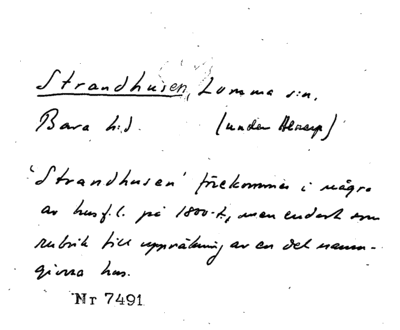 Strandhusen, Lomma s:n,
Bara h:d. (under Alnarp)
'Strandhusen' förekommer i några
av husf.l. på 1800-t., men endast som
rubrik till uppräkning av en del namn-
givna hus.
Nr 7491